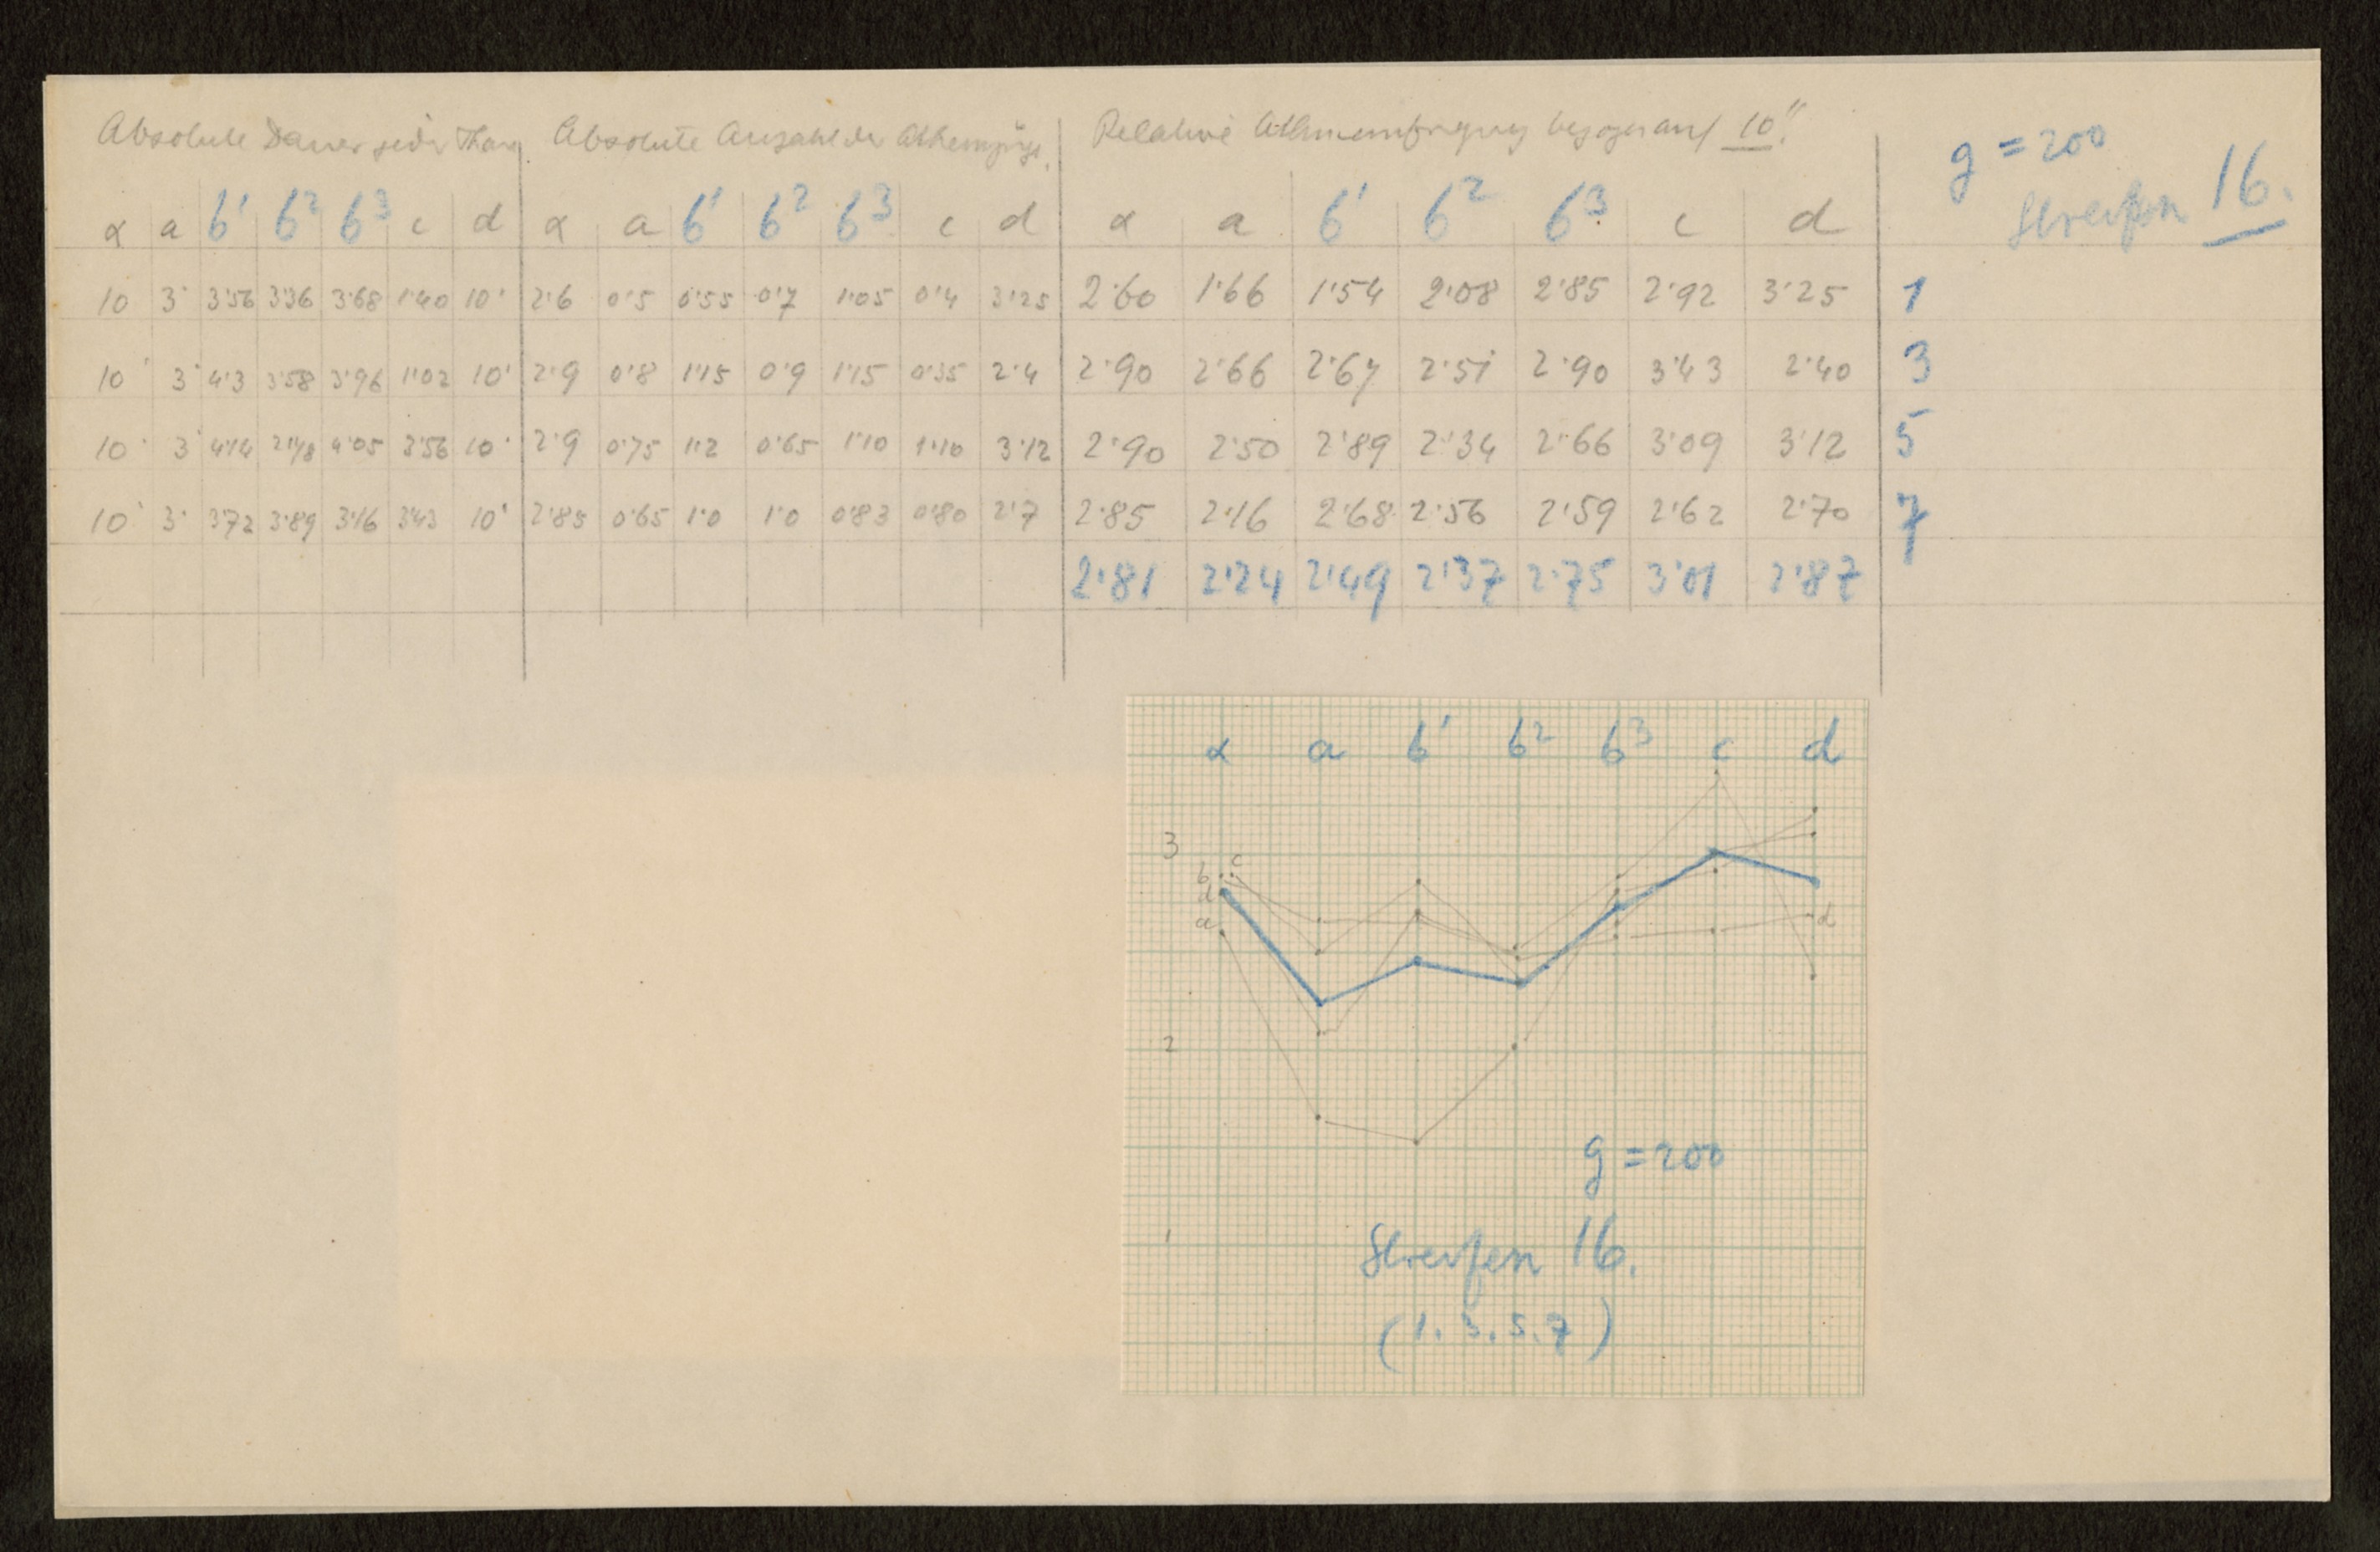 Absolute Dauer jeder Absolute Anzahl der Athemzüge. Relative bezogen auf 10".
g = 200
Streifen 16.
α a b¹ b² b³ c d α a b¹ b² b³ c d α a b¹ b² b³ c d
10 3' 3'56 3'36 3'68 1'40 10' 2'6 0'5 0'55 0'7 1'05 0'4 3'25 2'60 1'66 1'54 2'08 2'85 2'92 3'25 1
10' 3' 4'3 3'58 3'96 1'02 10' 2'9 0'8 1'15 0'9 1'15 0'35 2'4 2'90 2'66 2'67 2'51 2'90 3'43 2'40 3
10' 3' 4'14 4'05 3'56 10' 2'9 0'75 1'2 0'65 1'10 1'10 3'12 2'90 2'50 2'89 2'34 2'66 3'09 3'12 5
10' 3' 3'72 3'89 3'16 3'43 10' 2'85 0'65 1'0 1'0 0'83 0'80 2'7 2'85 2'16 2'68 2'56 2'59 2'62 2'70 7
2'81 2'24 2'49 2'37 2'75 3'01 2'87
α a b¹ b² b³ c d
3
c
b
d
a
d
2
g = 200
1
Streifen 16.
(1. 3. 5. 7)